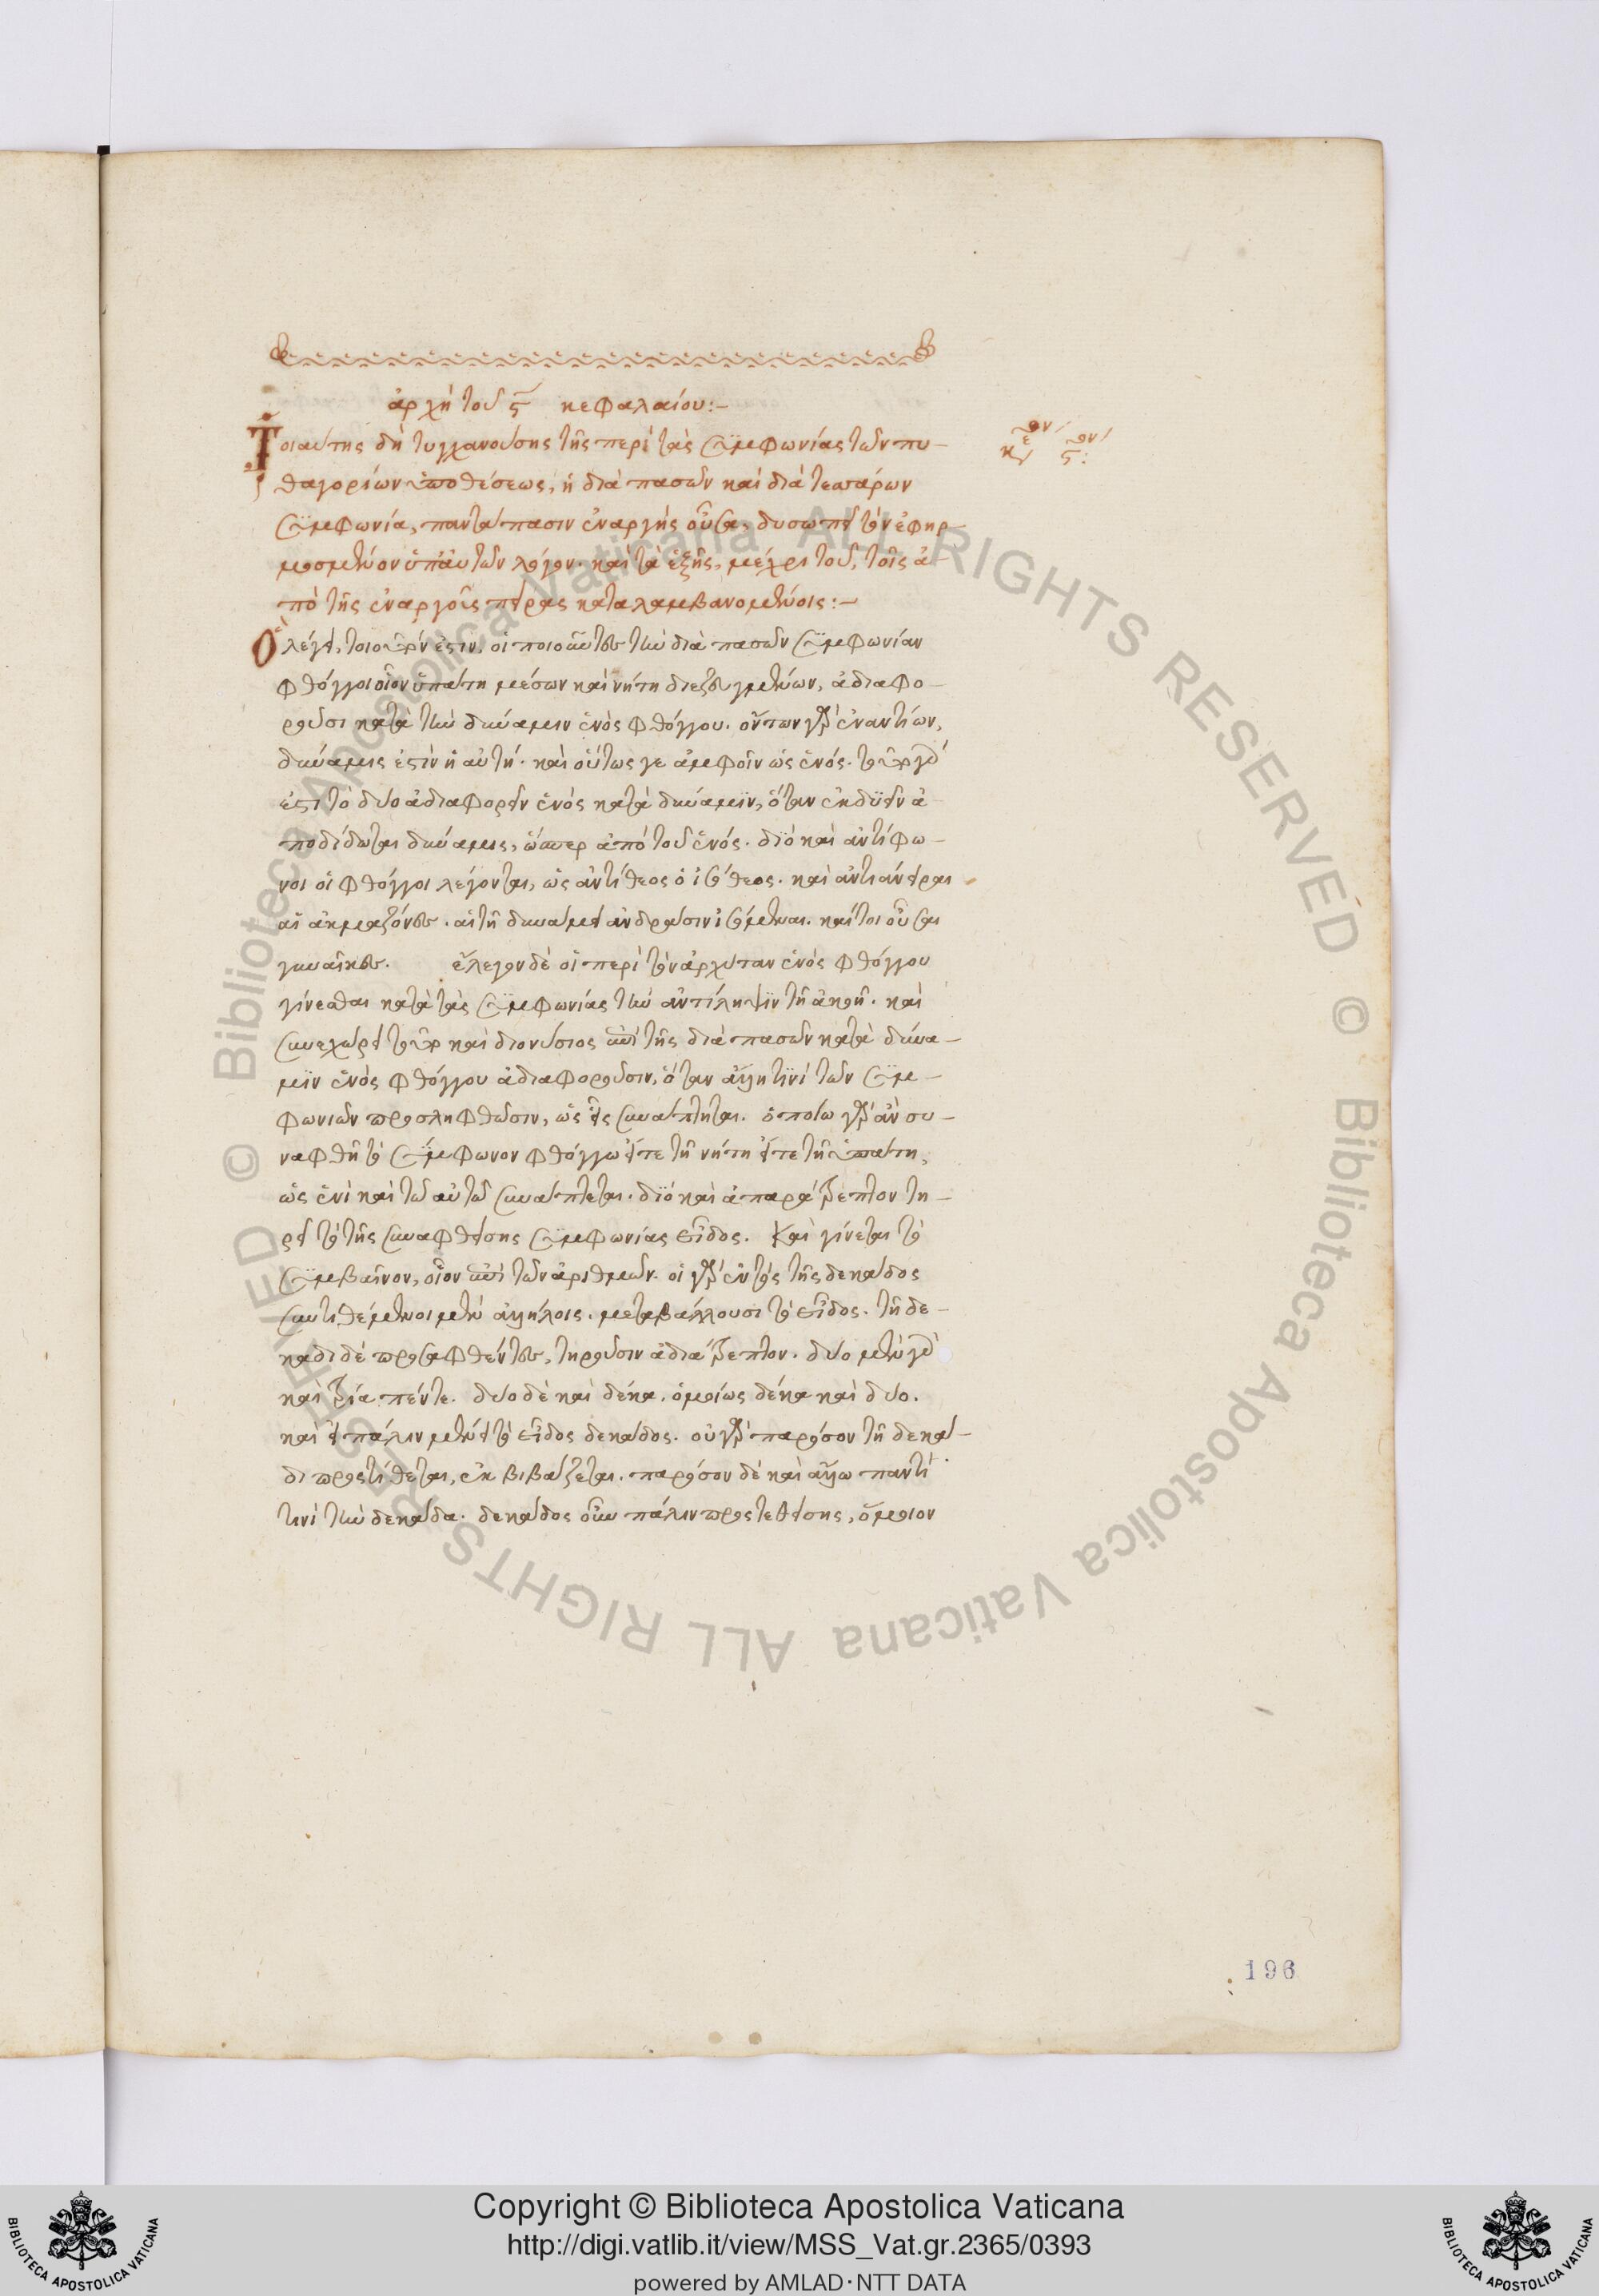 ἀρχὴ τοῦ ϛ κεφαλαίου:-
Τοιαύτης δὴ τυγχανούσης τῆς περὶ τὰς συμφωνίας τῶν πυ-
θαγορίων ὑποθέσεως, ἡ διὰ πασῶν καὶ διὰ τεσσάρων
συμφωνία, παντάπασιν ἐναργὴς οὖσα, δυσωπεῖ τὸν ἐφηρ-
μοσμένον ὑπ' αὐτῶν λόγον. καὶ τὰ ἑξῆς, μέχρι τοῦ, τοῖς ἀ-
πὸ τῆς ἐναργοῦς πείρας καταλαμβανομένοις:-
Ὃ λέγει, τοιοῦτόν ἐστιν. οἱ ποιοῦντες τὴν διὰ πασῶν συμφωνίαν
φθόγγοι οἷον ὑπάτη μέσων καὶ νήτη διεζευγμένων, ἀδιαφο-
ροῦσι κατὰ τὴν δύναμιν ἑνὸς φθόγγου. οὔπων γὰρ ἐναντίων,
δύναμις ἐστὶν ἡ αὐτή. καὶ οὕτως γε ἀμφοῖν ὡς ἑνός. τοῦτο γάρ
ἐστι τὸ δύο ἀδιαφορεῖν ἑνὸς κατὰ δύναμιν, ὅταν ἐκ δυεῖν ἀ-
ποδίδωται δύναμις, ὥσπερ ἀπὸ τοῦ ἑνός. διὸ καὶ ἀντίφω-
νοι οἱ φθόγγοι λέγονται, ὡς ἀντίθεος ὁ ἰσόθεος. καὶ ἀντιάνειραι
αἱ ἀκμαζόνες. αἱ τῇ δυνάμει ἀνδράσιν ἰσόμεναι. καίτοι οὖσαι
γυναῖκες. ἔλεγον δὲ οἱ περὶ τὸν ἀρχύταν ἑνὸς φθόγγου
γίνεσθαι κατὰ τὰς συμφωνίας τὴν ἀντίληψιν τῇ ἀκοῇ. καὶ
συνεχώρει τοῦτο καὶ διονύσιος ἐπὶ τῆς διὰ πασῶν κατὰ δύνα-
μιν ἑνὸς φθόγγου ἀδιαφοροῦσιν, ὅταν ἄλλη τινὶ τῶν συμ-
φωνιῶν προσληφθῶσιν, ὡς εἷς συνάπτηται. ὁποίω γὰρ ἂν συ-
ναφθῇ τὸ σύμφωνον φθόγγω εἴτε τῇ νήτη εἴτε τῇ ὑπάτη,
ὡς ἑνὶ καὶ τῶ αὐτῶ συνάπτεται. διὸ καὶ ἀπαράτρεπτον τη-
ρεῖ τὸ τῆς συναφθείσης συμφωνίας εἶδος. Καὶ γίνεται τὸ
συμβαῖνον, οἷον ἐπὶ τῶν ἀριθμῶν. οἱ γὰρ ἐντὸς τῆς δεκάδος
συντιθέμενοι μὲν ἀλλήλοις. μεταβάλλουσι τὸ εἶδος. τῇ δε-
κάδι δὲ προσαφθέντες, τηροῦσιν ἀδιάτρεπτον. δύο μὲν γὰρ
καὶ τρία πέντε. δύο δὲ καὶ δέκα. ὁμοίως δέκα καὶ δύο.
καὶ εἰ πάλιν μένει τὸ εἶδος δεκάδος. οὐ γὰρ παρόσον τῇ δεκά-
δι προστίθεται, ἐκβιβάζεται. παρόσον δὲ καὶ ἄλλω παντί
τινὶ τὴν δεκάδα. δεκάδος οὖν πάλιν προστεθείσης, ὅμοιον
196
ALL RIGHTS RESERVED © Biblioteca Apostolica Vaticana
Copyright © Biblioteca Apostolica Vaticana
http://digi.vatlib.it/view/MSS_Vat.gr.2365/0393
powered by AMLAD·NTT DATA
BIBLIOTECA APOSTOLICA VATICANA
BIBLIOTECA APOSTOLICA VATICANA